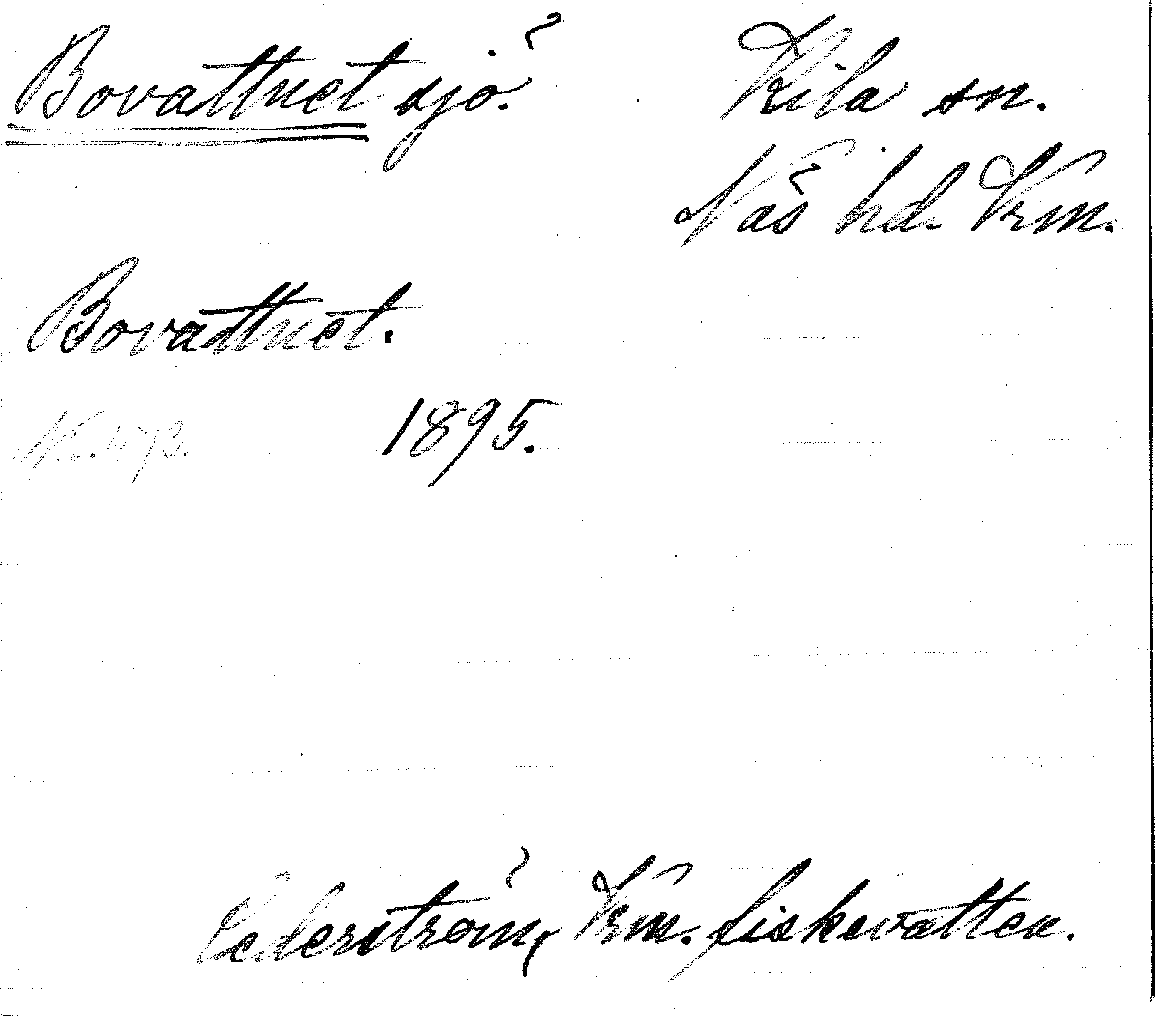 Bovattnet sjö.
Kila sn.
Näs hd. Vrm.
Bovattnet.
1895.
Cederström, Vrm. fiskevatten.